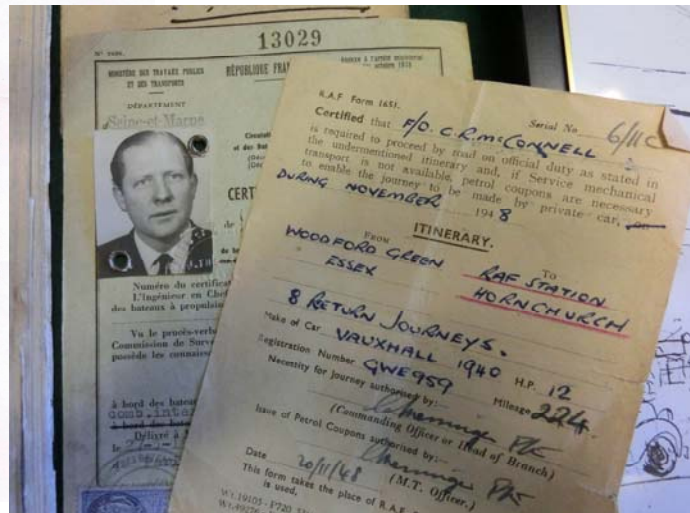 13029
MINISTÈRE DES TRAVAUX PUBLICS
ET DES TRANSPORTS
RÉPUBLIQUE FRAN
DÉPARTEMENT
Seine-et-Marne
CERT
Numéro du certifica
L'Ingénieur en Che
des bateaux à propulsi
Vu le procès-verb
Commission de Surve
possède les connais
à bord des bateau
comb.inte
à bord des bate
Délivré à
R.A.F Form 1651.
Serial No 6/11C
Certified that F/O. C.R. McCONNELL
is required to proceed by road on official duty as stated in
the undermentioned itinerary and, if Service mechanical
transport is not available, petrol coupons are necessary
to enable the journey to be made by private car,
DURING NOVEMBER 1948
ITINERARY.
From To
WOODFORD GREEN RAF STATION
ESSEX HORNCHURCH
8 RETURN JOURNEYS.
Make of Car VAUXHALL 1940 H.P. 12
Registration Number GWE959 Mileage 224.
Necessity for journey authorised by:
(Commanding Officer or Head of Branch)
Issue of Petrol Coupons authorised by:
Date 20/11/48 (M.T. Officer.)
This form takes the place of R.A.F.
is used.